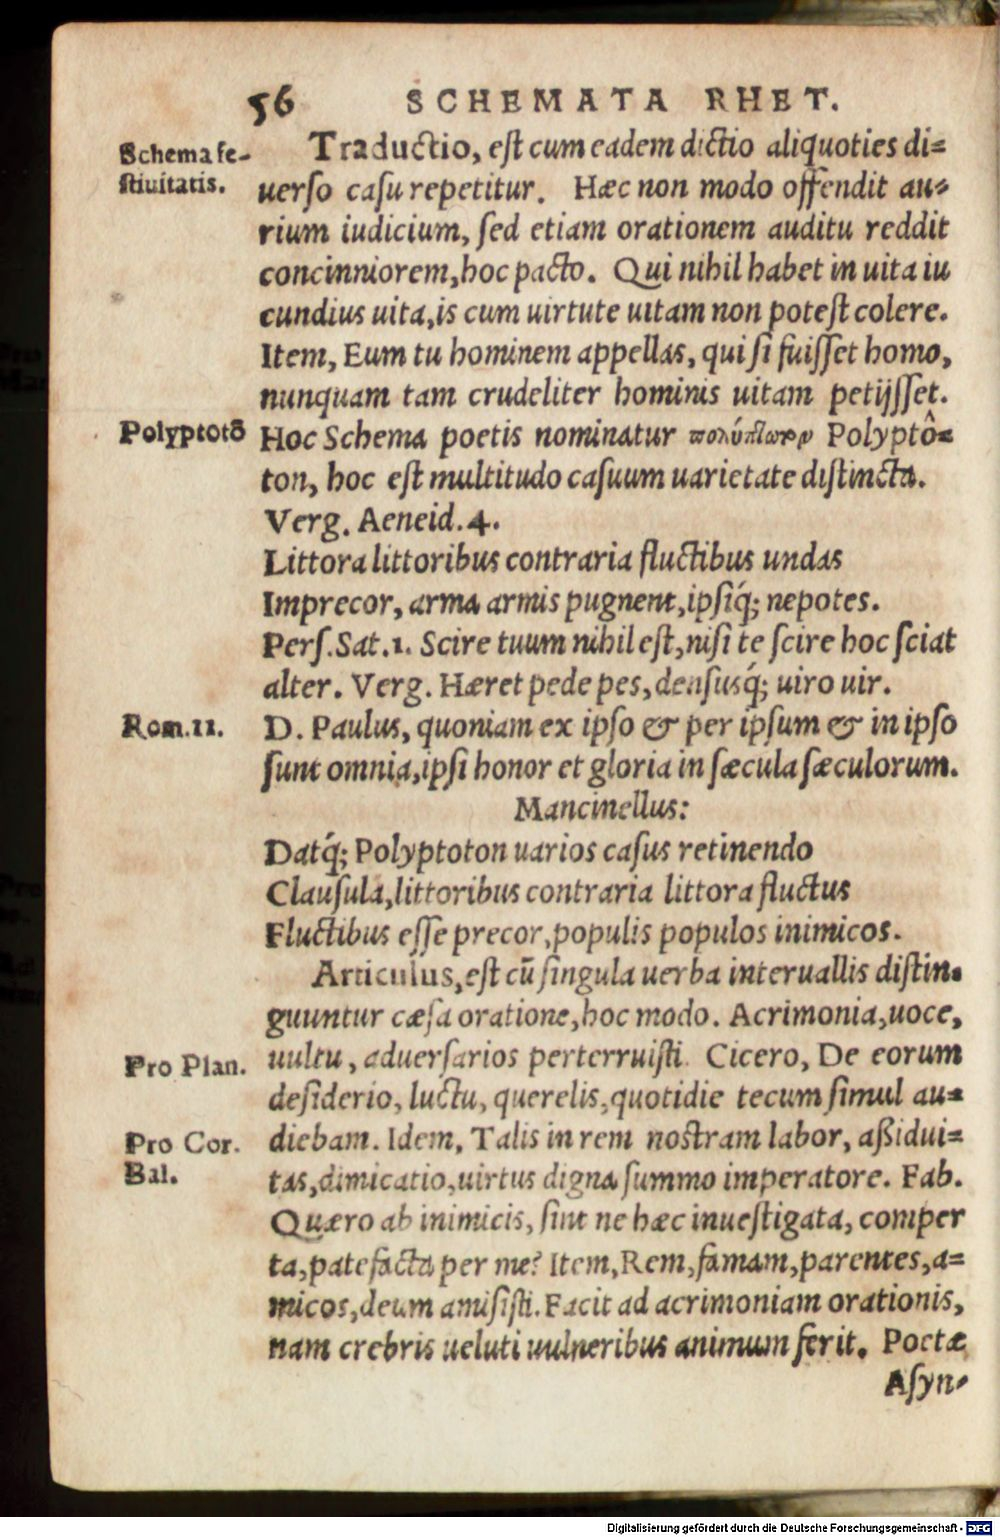 56 SCHEMATA RHET.
Schema fe-
stiuitatis.
Traductio, est cum eadem dictio aliquoties di=
uerso casu repetitur. Hæc non modo offendit au=
rium iudicium, sed etiam orationem auditu reddit
concinniorem, hoc pacto. Qui nihil habet in uita iu
cundius uita, is cum uirtute uitam non potest colere.
Item, Eum tu hominem appellas, qui si fuisset homo,
nunquam tam crudeliter hominis uitam petijsset.
Polyptotõ
Hoc Schema poetis nominatur πολύπτωτον Polyptô=
ton, hoc est multitudo casuum uarietate distincta.
Verg. Aeneid.4.
Littora littoribus contraria fluctibus undas
Imprecor, arma armis pugnent, ipsiq́; nepotes.
Pers. Sat.1. Scire tuum nihil est, nisi te scire hoc sciat
alter. Verg. Hæret pede pes, densusq́; uiro uir.
Rom.11.
D. Paulus, quoniam ex ipso & per ipsum & in ipso
sunt omnia, ipsi honor et gloria in sæcula sæculorum.
Mancinellus:
Datq́; Polyptoton uarios casus retinendo
Clausula, littoribus contraria littora fluctus
Fluctibus esse precor, populis populos inimicos.
Articulus, est cū singula uerba interuallis distin=
guuntur cæsa oratione, hoc modo. Acrimonia, uoce,
Pro Plan.
uultu, aduersarios perterruisti. Cicero, De eorum
desiderio, luctu, querelis, quotidie tecum simul au=
Pro Cor.
Bal.
diebam. Idem, Talis in rem nostram labor, aßidui=
tas, dimicatio, uirtus digna summo imperatore. Fab.
Quæro ab inimicis, sint ne hæc inuestigata, comper
ta, patefacta per me? Item, Rem, famam, parentes, a=
micos, deum amisisti. Facit ad acrimoniam orationis,
nam crebris ueluti uulneribus animum ferit. Poetæ
Asyn=
Digitalisierung gefördert durch die Deutsche Forschungsgemeinschaft - DFG